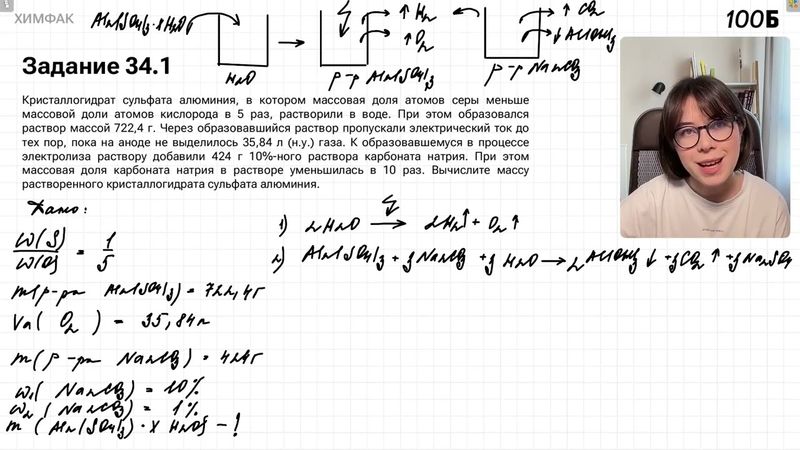 ХИМФАК
100Б
Al₂(SO₄)₃·xH₂O
H₂O
↑ H₂
↑ O₂
р-р Al₂(SO₄)₃
↑ CO₂
↓ Al(OH)₃
р-р Na₂CO₃
Задание 34.1
Кристаллогидрат сульфата алюминия, в котором массовая доля атомов серы меньше
массовой доли атомов кислорода в 5 раз, растворили в воде. При этом образовался
раствор массой 722,4 г. Через образовавшийся раствор пропускали электрический ток до
тех пор, пока на аноде не выделилось 35,84 л (н.у.) газа. К образовавшемуся в процессе
электролиза раствору добавили 424 г 10%-ного раствора карбоната натрия. При этом
массовая доля карбоната натрия в растворе уменьшилась в 10 раз. Вычислите массу
растворенного кристаллогидрата сульфата алюминия.
Дано:
ω(S)/ω(O) = 1/5
m(р-ра Al₂(SO₄)₃) = 722,4г
Va( O₂ ) = 35,84л
m(р-ра Na₂CO₃) = 424г
ω₁( Na₂CO₃) = 10%
ω₂( Na₂CO₃) = 1%
m (Al₂(SO₄)₃ · x H₂O) - ?
1) 2H₂O → 2H₂↑ + O₂↑
2) Al₂(SO₄)₃ + 3Na₂CO₃ + 3H₂O → 2Al(OH)₃↓ + 3CO₂↑ + 3Na₂SO₄